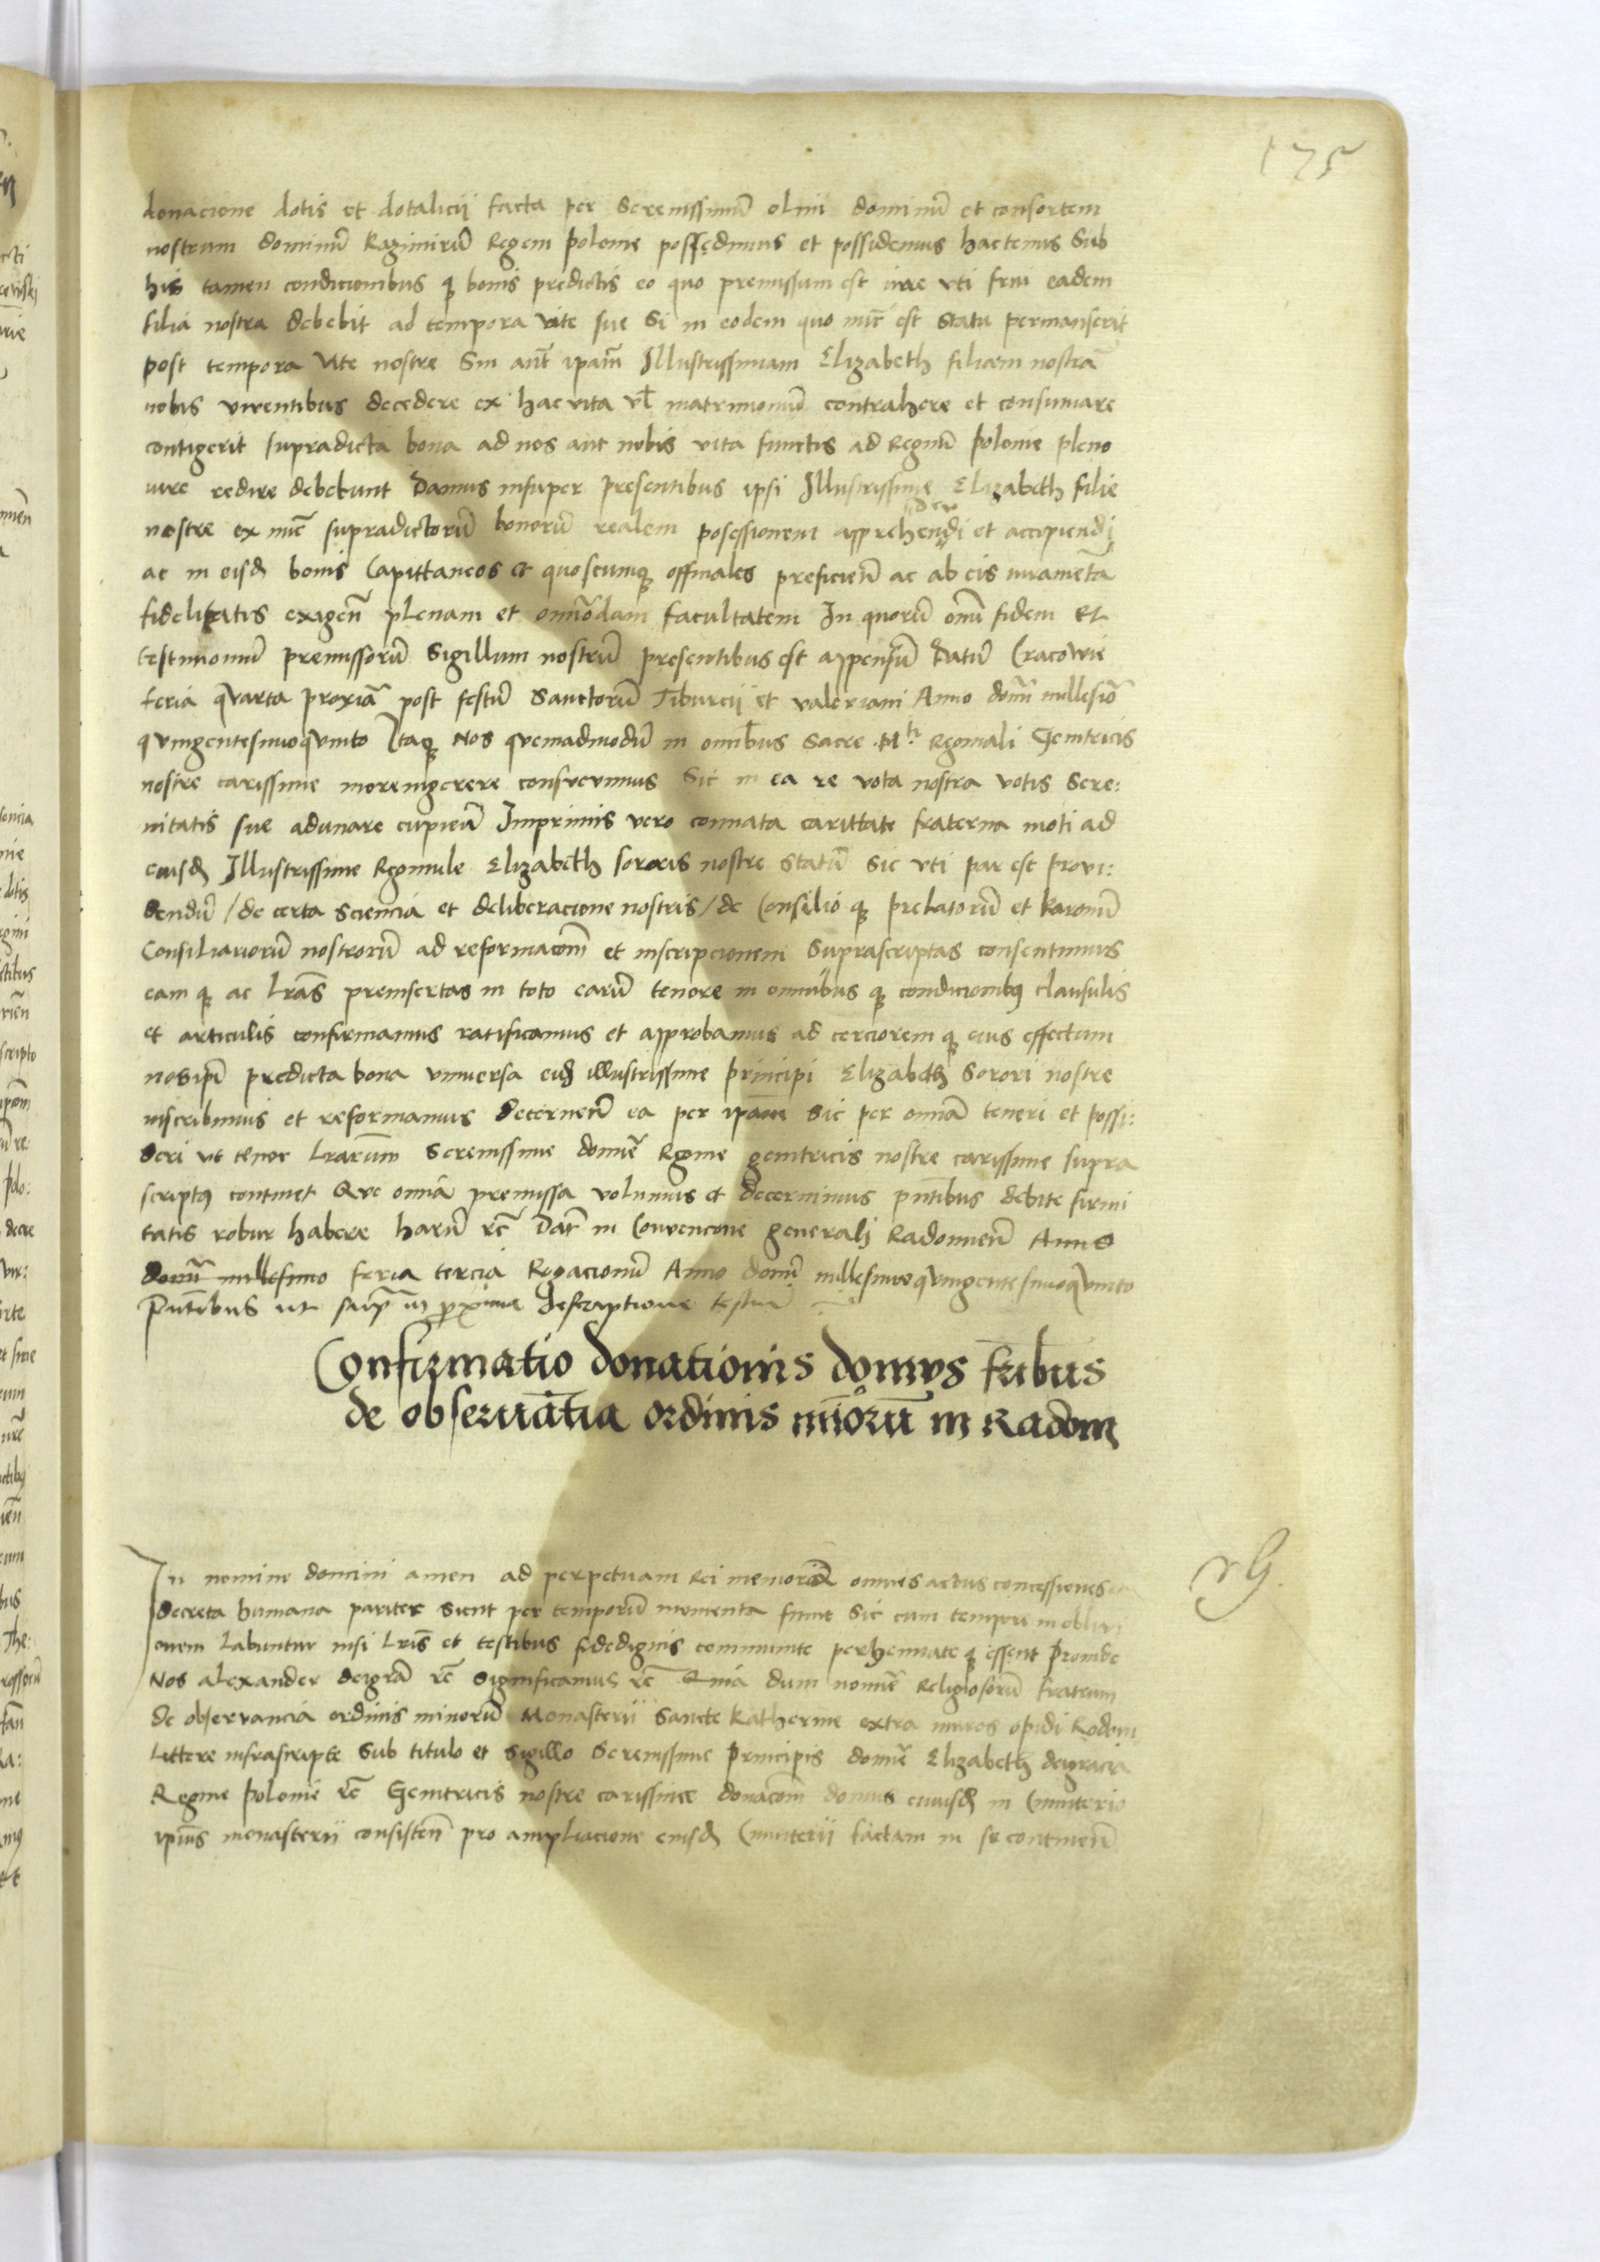 175
donacione dotis et dotalicii facta per Serenissimũ olim dominũ et consortem
nostrum dominũ Kazimirũ Regem Polonie possedimus et possidemus hactenus Sub
his tamen condicionibus q̃ bonis predictis eo quo premissum est iure vti frui eadem
filia nostra debebit ad tempora vite sue Si in eodem quo nũc est statu permanserit
post tempora vite nostre Sin aũt ipam̃ Illustrissimam Elizabeth filiam nostrã
nobis viventibus decedere ex hac vita vl̃ matrimoniũ contrahere et consumare
contigerit supradicta bona ad nos aut nobis vita functis ad Regnũ Polonie pleno
iure redire debebunt Damus insuper presentibus ipsi Illustrissime Elizabeth filie
nostre ex nũc supradictorũ bonorũ realem posessionem apprehendi et accipiendi
ac in eisd̃ bonis Capittaneos et quoscumq̃ officiales preficieñ ac ab eis iuramẽta
fidelitatis exigeñ plenam et om̃imodam facultatem In quorũ om̃i fidem et
testimoniũ premissorũ Sigillum nostrũ presentibus est appensũ Datũ Cracowie
feria qvarta proxiã post festũ Sanctorũ Tiburcii et valeriani Anno domĩ millesiõ
qvingentesimoqvinto Itaq̃ Nos qvemadmodũ in omĩbus Sacre Mti Reginali Genitricis
nostre carissime moremgerere consvevimus Sic in ea re vota nostra votis Sere:
nitatis sue adunare cupieñ Imprimis vero connata carittate fraterna moti ad
eiusd̃ Illustrissime Reginule Elizabeth sororis nostre statũ Sic vti par est Provi:
dendũ / de certa sciencia et deliberacione nostris / de Consilio q̃ prelatorũ et Baronũ
Consiliariorũ nostrorũ ad reformacom̃ et inscripcionem suprascriptas consentimus
eam q̃ ac lrãs preinsertas in toto earũ tenore in omnibus q̃ condicionibus clausulis
et articulis confirmamus ratificamus et approbamus ad cerciorem q̃ eius effectum
nosipi predicta bona vniversa eid̃ illustrissime principi Elizabeth Sorori nostre
inscribimus et reformamus Decerneñ ea per ipam̃ sic per omnia teneri et possi:
deri vt tenor lrarum̃ Serenissime domiẽ Regine genitricis nostre carissime supra
scriptus continet Qve omnia premissa volumus et decernimus pñtibus debite firmi
tatis robur habere harũ rc̃ Dat̃ in Convencione generali Radomieñ Anno
domĩ millesimo feria tercia Rogacionũ Anno domĩ millesimoqvingentesimoqvinto
Pñtibus ut supra in proxima Inscriptione
Confirmatio donationis domvs fribus
de observãtia ordinis mĩorũ in Radom
In nomine domini amen ad perpetuam Rei memoriã omnes actus concessiones
decreta humana pariter sicut per temporũ momenta fiunt Sic cum tempore in oblivi
onem labuntur nisi lris̃ et testibus fidedignis communite perhennate q̃ essent Proinde
Nos Alexander deigrã rc̃ Significamus rc̃ Quia dum nomiẽ Religiosorũ fratrum
de observancia ordinis minorũ Monasterii Sancte Katherine extra muros opidi Radom
littere infrascripte Sub titulo et sigillo Serenissime Principis domiẽ Elizabeth deigracia
Regine Polonie rc̃ Genitricis nostre carissime donacom̃ domus cuiusd̃ in Cimiterio
ipĩus monasterii consisteñ pro ampliacione eiusd̃ Cimiterii factam in se contineñ